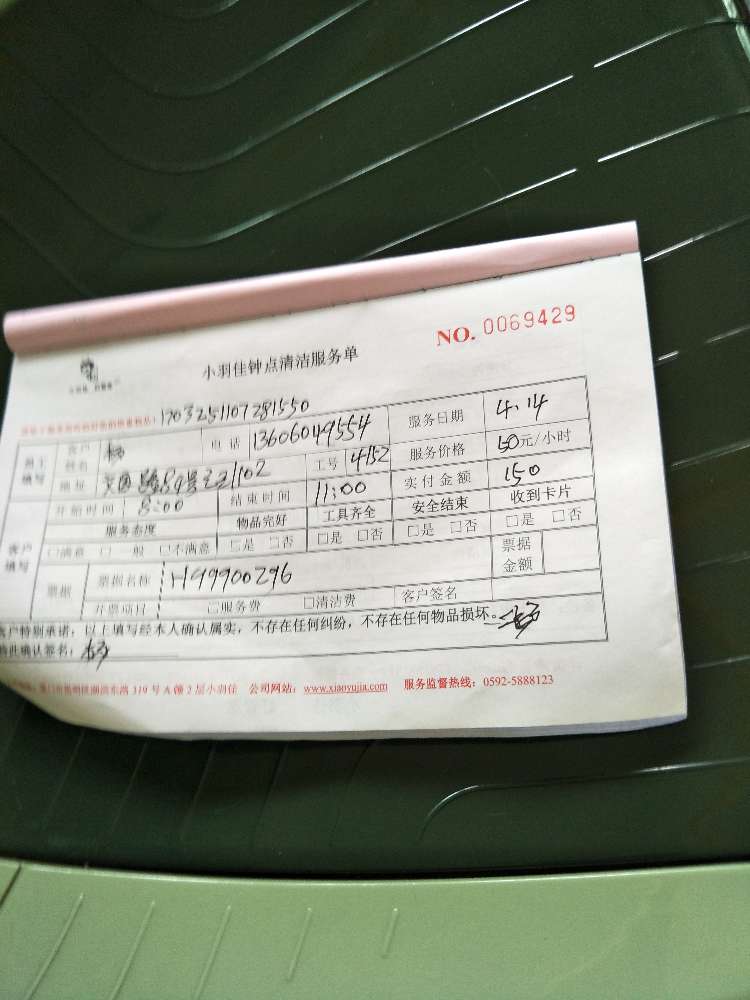 NO. 0069429
小羽佳钟点清洁服务单
1703251107281550
员工填写 客户姓名 杨 电话 13606049554 服务日期 4.14
地址 1102 工号 4152 服务价格 50元/小时
开始时间 8:00 结束时间 11:00 实付金额 150
客户填写 服务态度 物品完好 工具齐全 安全结束 收到卡片
□满意 □一般 □不满意 □是 □否 □是 □否 □是 □否 □是 □否
票据 票据名称 H99900296 票据金额
开票项目 □服务费 □清洁费 客户签名
客户特别承诺:以上填写经本人确认属实,不存在任何纠纷,不存在任何物品损坏。
特此确认签名:杨
319号A幢2层小羽佳 公司网站:www.xiaoyujia.com 服务监督热线:0592-5888123